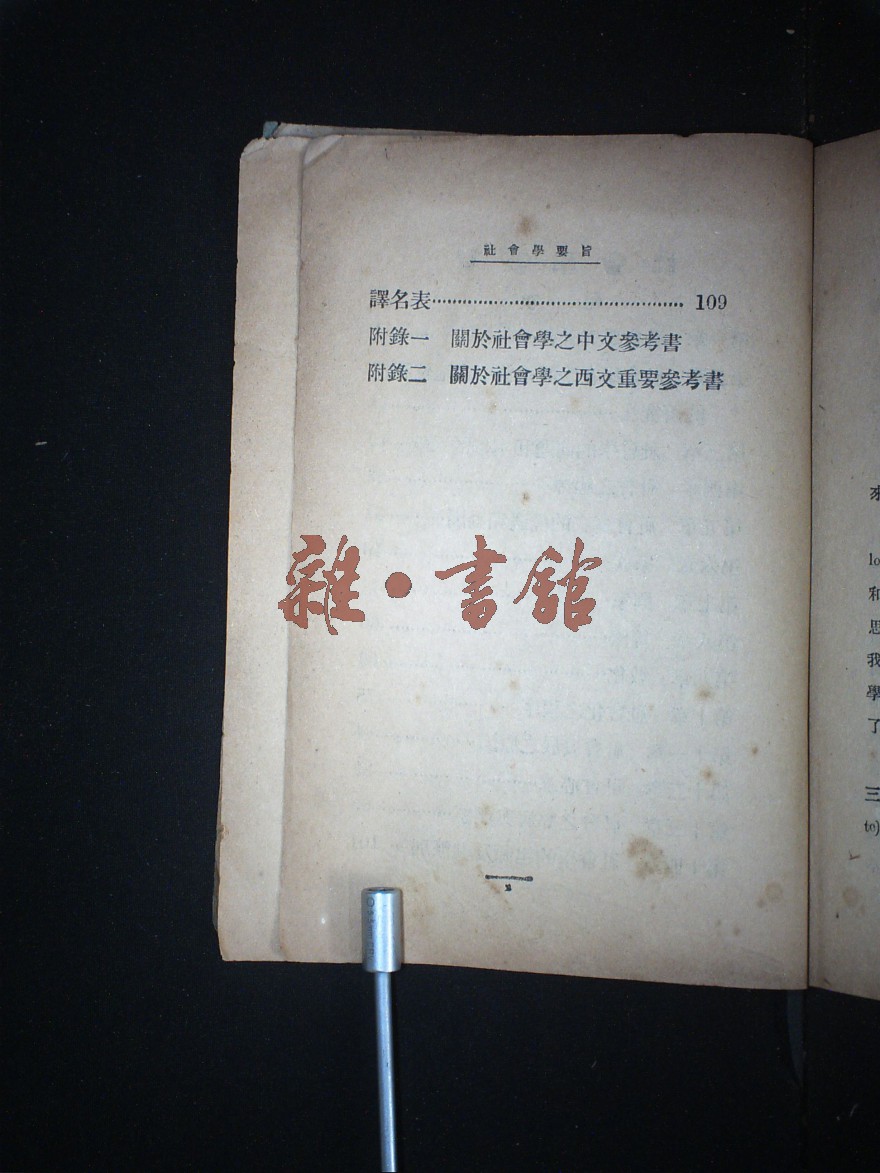 社會學要旨
譯名表 109
附錄一 關於社會學之中文參考書
附錄二 關於社會學之西文重要參考書
雜·書館
2
lo
和
思
我
學
了
三
to)